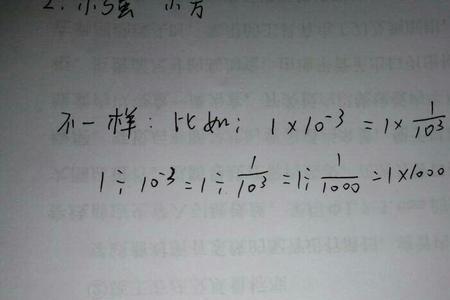 不一样：比如： 1×10⁻³ = 1×1/10³
1÷10⁻³=1÷1/10³=1÷1/1000=1×1000